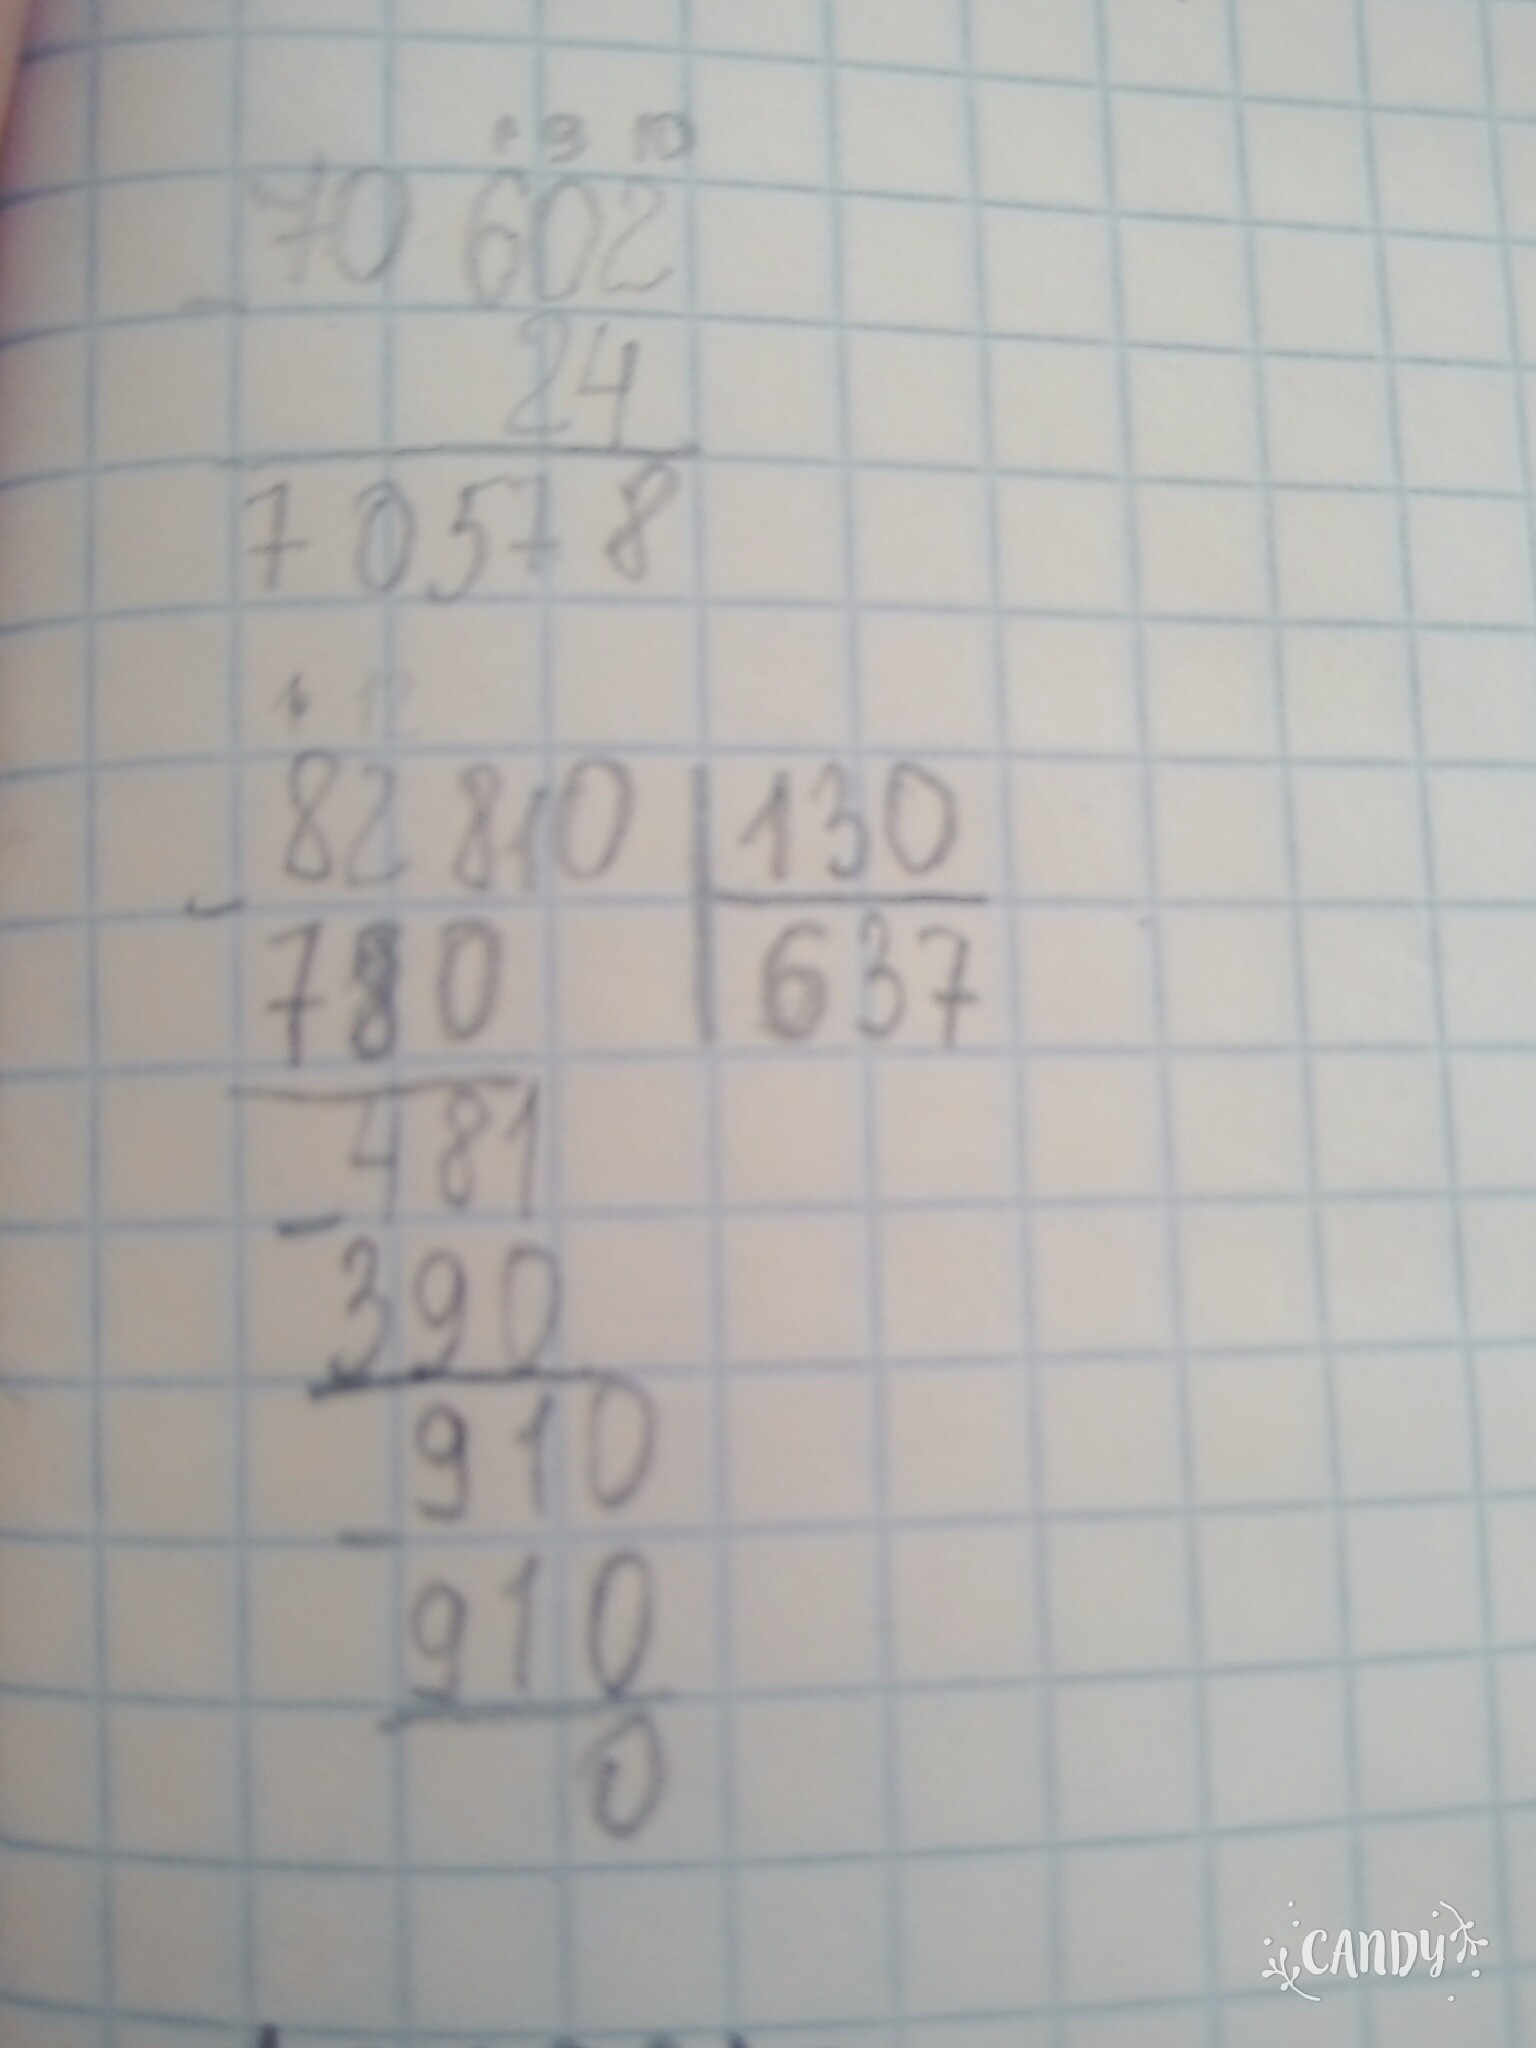 9 10
70 602
-
24
70578
82 810 130
-
780 637
481
-
390
910
-
910
0
CANDY